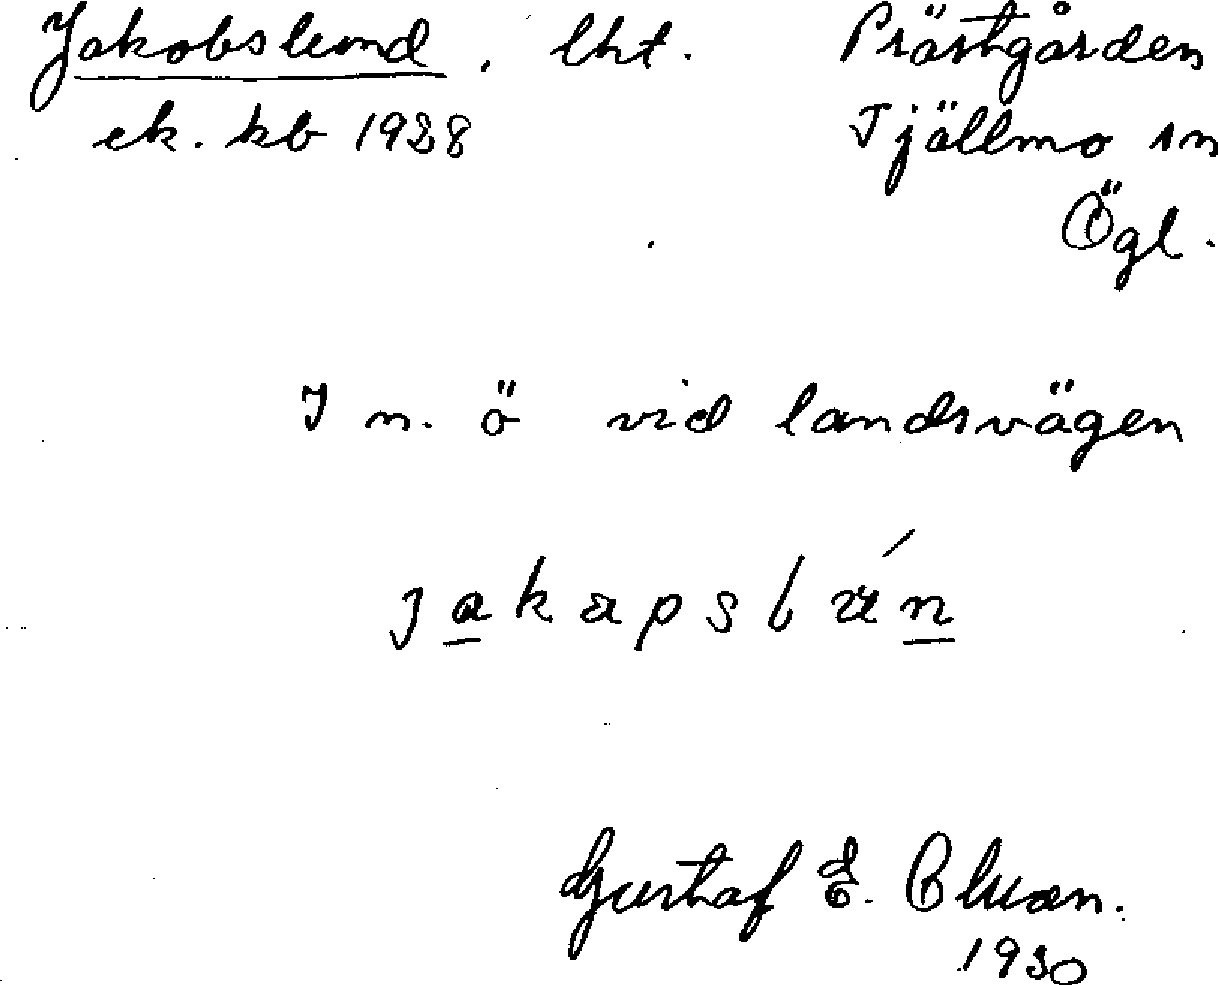 Jakobslund, lht. Prästgården
ek. kb 1928 Tjällmo sn
Ögl.
I n. ö vid landsvägen
Gustaf E.
1930